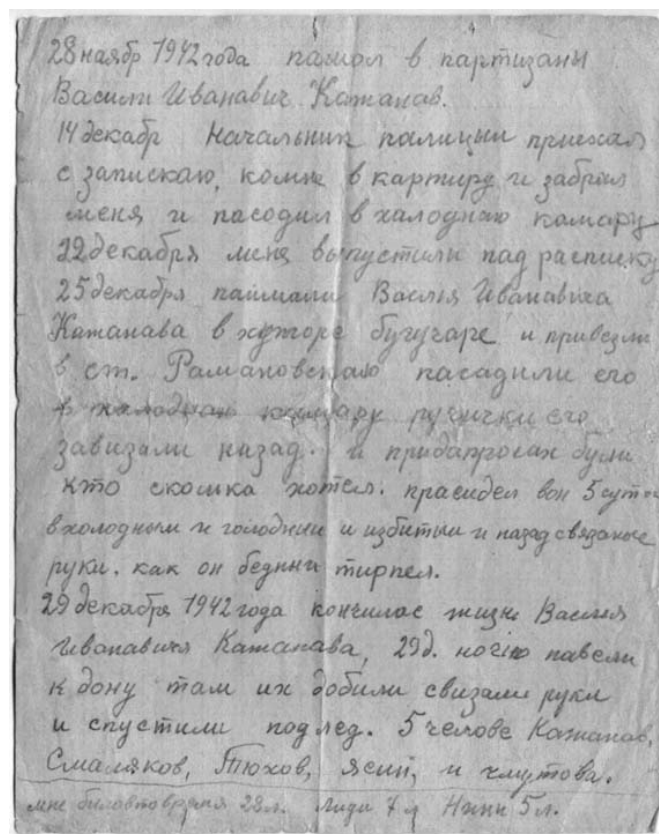 28 ноябр 1942 года пашол в партизаны
Васили Иванавич Кажанав.
14 декабр Начальник палицыи приехал
с запискаю, комне в картиру и забрал
меня и пасодил в халоднаю камару
22 декабря меня выпустили пад расписку
25 декабря паймали Василя Иванавича
Кажанава в хуторе бугучаре и привезли
в ст. Рамановскаю пасадили его
в халодная камару ручички его
завизали назад. и придапросах були
кто скошка хотел. прасидел вон 5 суток
вхолодным и голодным и избитыи и назад связаные
руки. как он бедный тирпел.
29 декабря 1942 года кончилас жизнь Василя
Иванавича Кажанава, 29 д. ночю павели
к дону там их добили свизали руки
и спустили под лед. 5 челове Кажанав,
Смаляков, Тюхов, Ясин, и
мне билавтовремя 28 л. Лиди 7 л Нини 5 л.